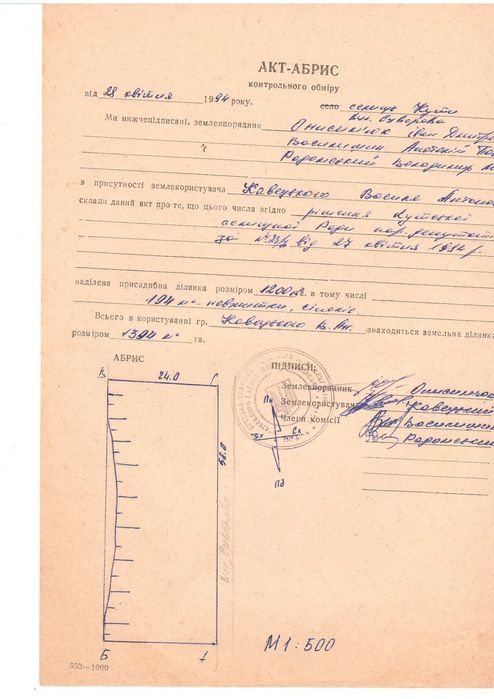 АКТ-АБРИС
контрольного обміру
від 28 квітня 1994 року. село селище Кути
вул. Суворова
Ми нижчепідписані, землевпорядник Онисимчою Іван Дмитро
Василишин
Радомський Володимир
в присутності землекористувача Кавецького Василя Антоно
склали даний акт про те, що цього числа згідно рішення Кутської
селищної Ради нар. депутатів
від 27 квітня 1994 р.
наділена присадибна ділянка розміром 1200 м² в тому числі
194 м²
Всього в користуванні гр. Кавецького В. Ан. знаходиться земельна ділянка
розміром 1394 м² га.
АБРИС
ПІДПИСИ:
Землевпорядник
Землекористувач Кавецький
Члени комісії Василишин
Радомський
В 24.0 Г
58.0
Пн
Зх Сх
Пд
вул. Суворова
Б А
М 1:500
553—1000